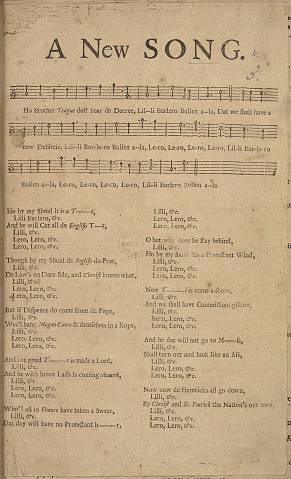 A New SONG.
Ho Brother Teague dost hear de Decree, Lil-li Burlero Bullen a-la, Dat we shall have a
new Debittie, Lil-li Bur-le-ro Bullen a-la, Le-ro, Le-ro, Le-ro, Le-ro, Lil-li Bur-le-ro
Bullen a-la, Le-ro, Le-ro, Le-ro, Le-ro, Lil-li Burlero Bullen a-la.
Ho by my Shoul it is a T——t,
Lilli Burlero, &c.
And he will Cut all de English T——t,
Lilli, &c.
Lero, Lero, &c.
Lero, Lero, &c.
Though by my Shoul de English do Prat,
Lilli, &c.
De Law's on Dare side, and Chrish knows what,
Lilli, &c.
Lero, Lero, &c.
Lero, Lero, &c.
But if Dispence do come from de Pope,
Lilli, &c.
Wee'l hang Magno Carto & demselves in a Rope,
Lilli, &c.
Lero, Lero, &c.
Lero, Lero, &c.
And the good T——t is made a Lord,
Lilli, &c.
And he with brave Lads is coming aboard,
Lilli, &c.
Lero, Lero, &c.
Lero, Lero, &c.
Who'l all in France have taken a Swear,
Lilli, &c.
Dat day will have no Protestant h——r,
Lilli, &c.
Lero, Lero, &c.
Lero, Lero, &c.
O but why does he stay behind,
Lilli, &c.
Ho by my shoul 'tis a Protestant Wind,
Lilli, &c.
Lero, Lero, &c.
Lero, Lero, &c.
Now T——l is come a-shore,
Lilli, &c.
And we shall have Commissions gillore,
Lilli, &c.
Lero, Lero, &c.
Lero, Lero, &c.
And he dat will not go to M——ss,
Lilli, &c.
Shall turn out and look like an Ass,
Lilli, &c.
Lero, Lero, &c.
Lero, Lero, &c.
Now now de Hereticks all go down,
Lilli, &c.
By Chrish and St. Patrick the Nation's our own,
Lilli, &c.
Lero, Lero, &c.
Lero, Lero, &c.